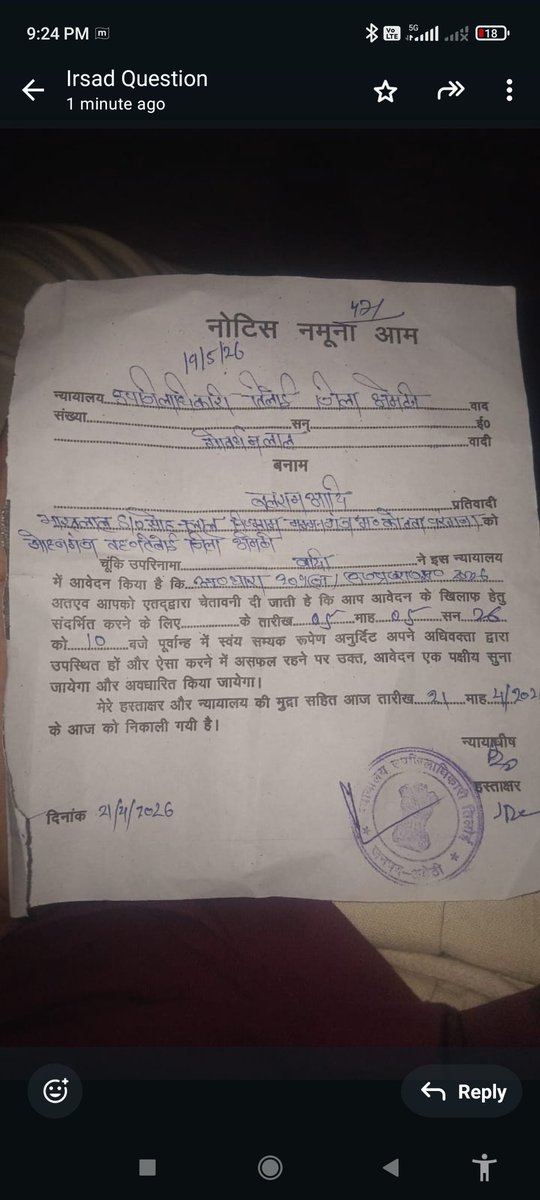 9:24 PM
Vo LTE 5G 18
Irsad Question
1 minute ago
नोटिस नमूना आम
19/5/26
न्यायालय उपजिलाधिकारी तिलोई जिला अमेठी वाद
संख्या सन् ई०
लाल वादी
बनाम
आदि प्रतिवादी
को
जिला अमेठी
चूंकि उपरिनामा वादी ने इस न्यायालय
में आवेदन किया है कि धारा
अतएव आपको एतद्द्वारा चेतावनी दी जाती है कि आप आवेदन के खिलाफ हेतु
संदर्भित करने के लिए के तारीख 05 माह 05 सन 26
को 10 बजे पूर्वान्ह में स्वंय सम्यक रूपेण अनुर्दिट अपने अधिवक्ता द्वारा
उपस्थित हों और ऐसा करने में असफल रहने पर उक्त, आवेदन एक पक्षीय सुना
जायेगा और अवधारित किया जायेगा।
मेरे हस्ताक्षर और न्यायालय की मुद्रा सहित आज तारीख 21 माह 4/202
के आज को निकाली गयी है।
न्यायाधीष
हस्ताक्षर
न्यायालय उपजिलाधिकारी तिलोई
जनपद-अमेठी
दिनांक 21/4/2026
Reply